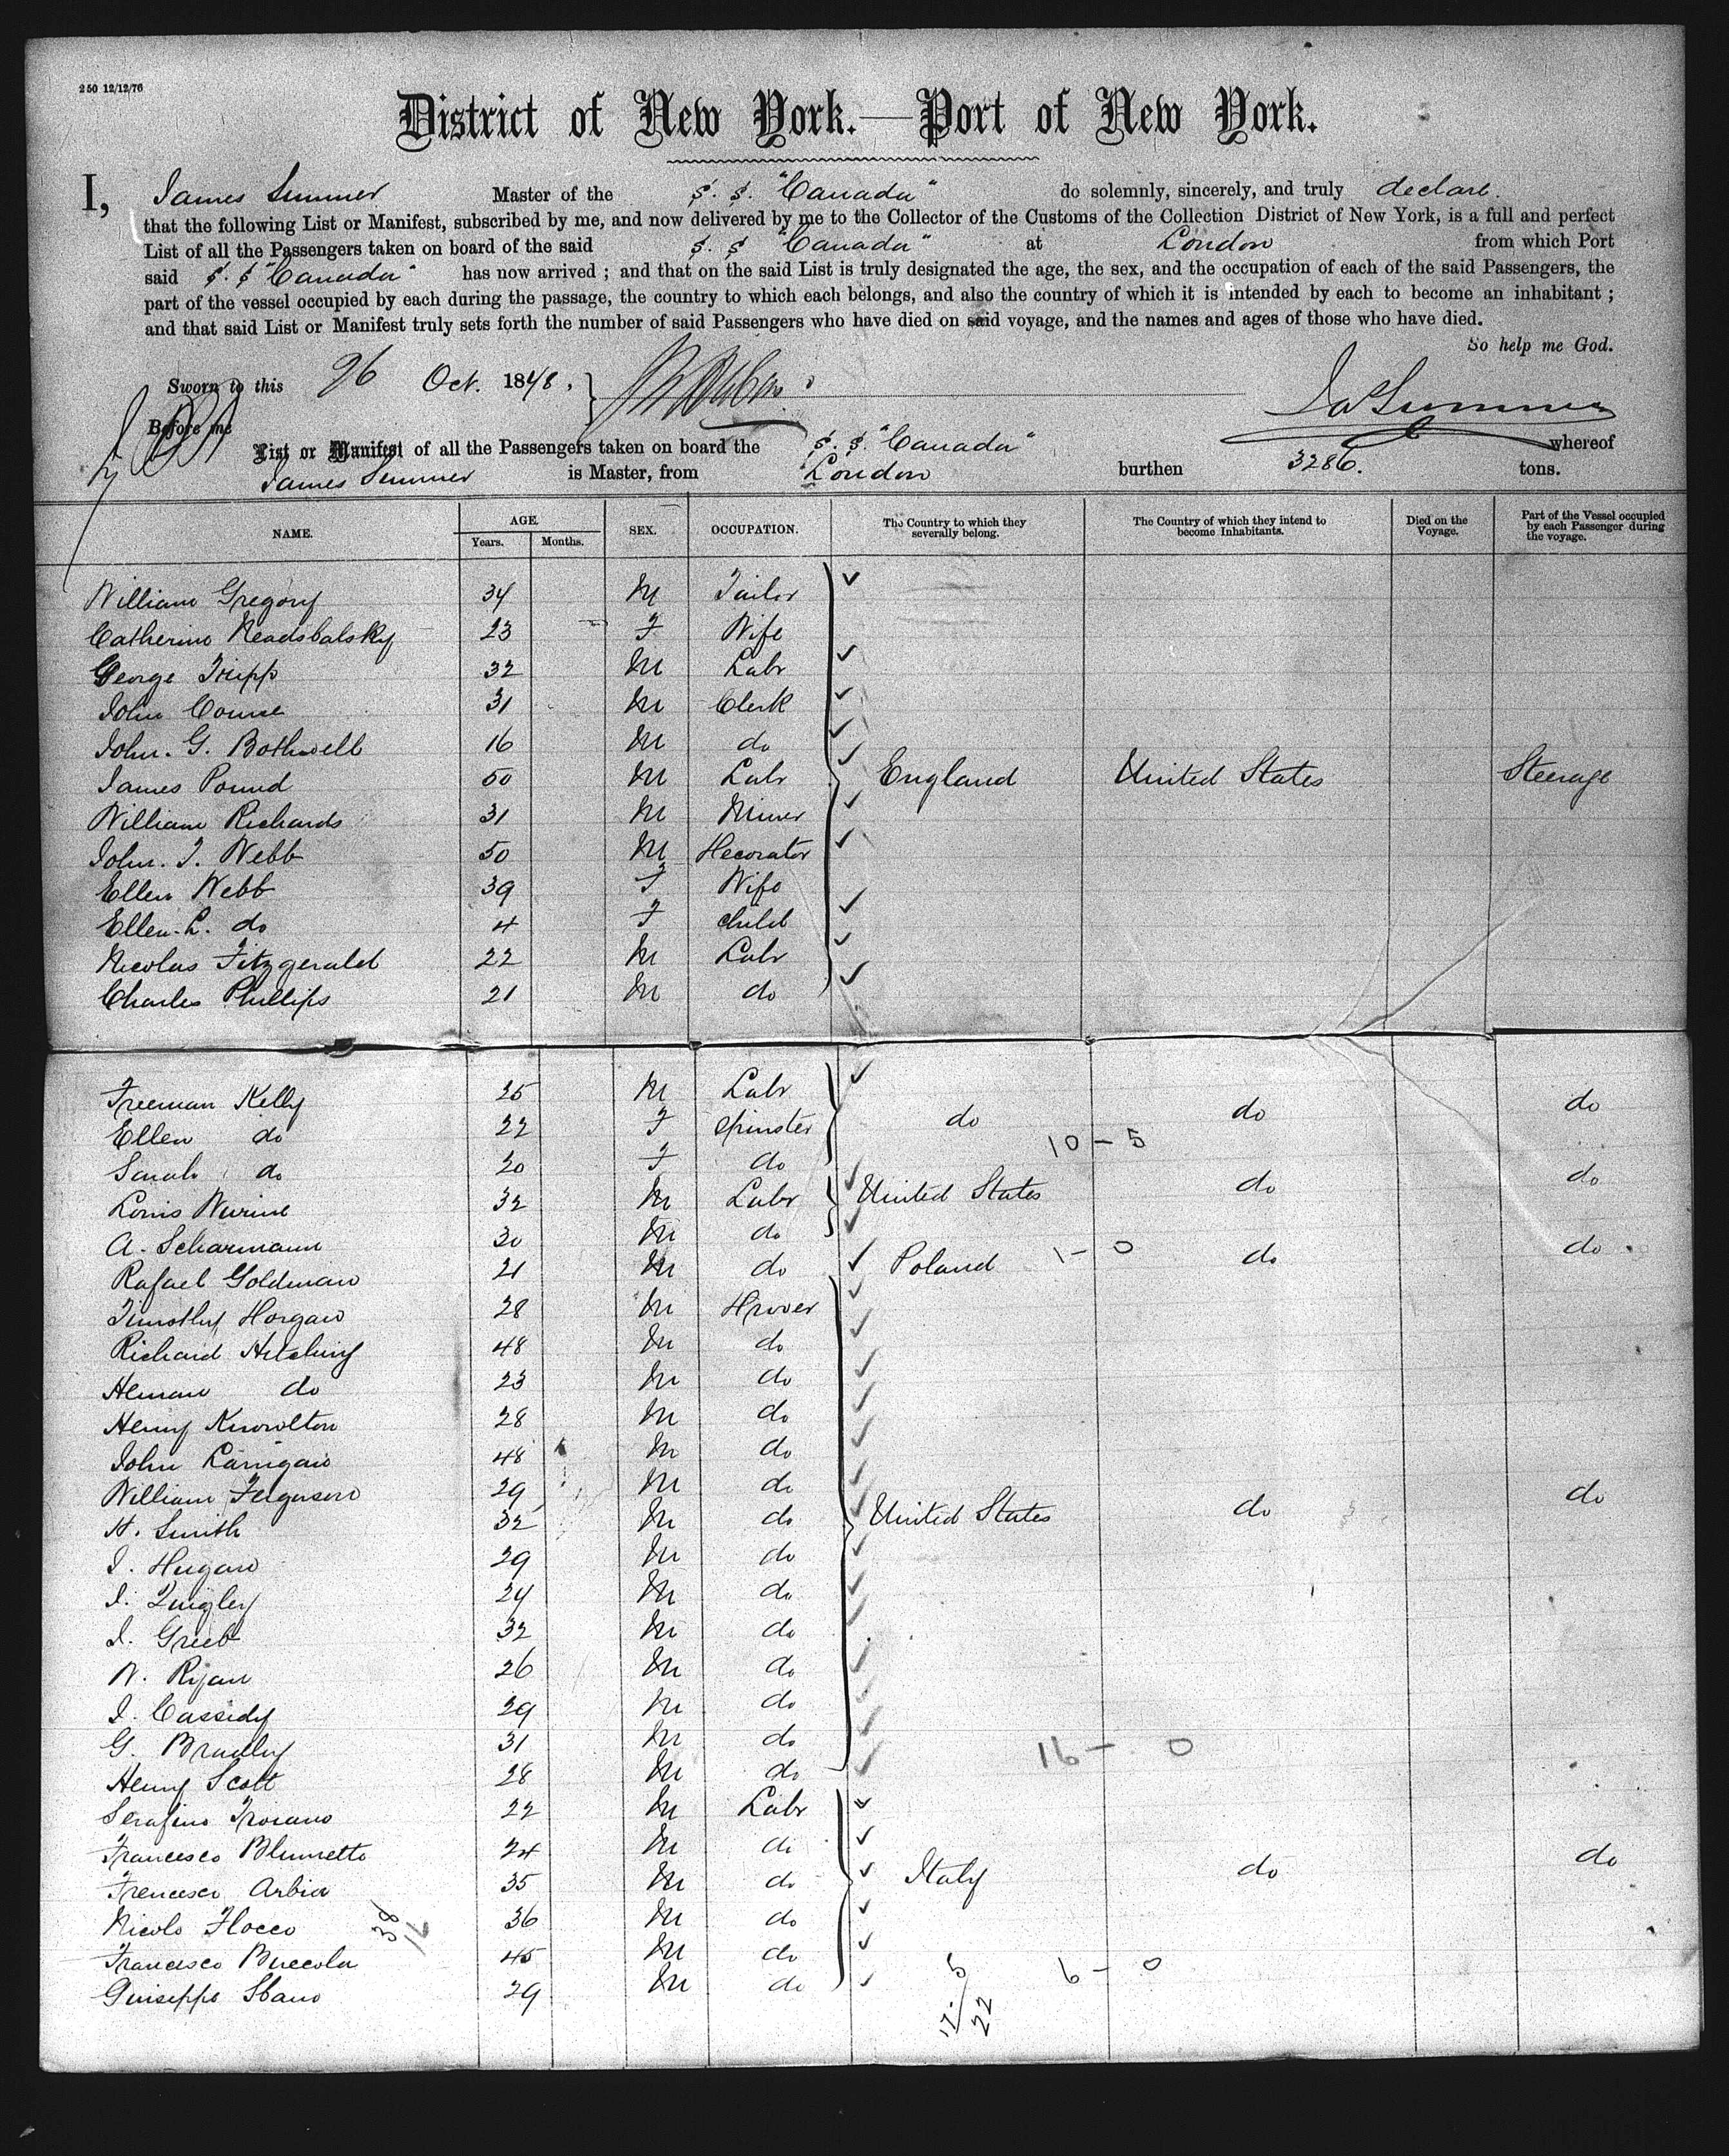 250 12/12/76
District of New York.—Port of New York.
I, James Sumner Master of the S. S. "Canada" do solemnly, sincerely, and truly declare
that the following List or Manifest, subscribed by me, and now delivered by me to the Collector of the Customs of the Collection District of New York, is a full and perfect
List of all the Passengers taken on board of the said S. S "Canada" at London from which Port
said S. S "Canada" has now arrived ; and that on the said List is truly designated the age, the sex, and the occupation of each of the said Passengers, the
part of the vessel occupied by each during the passage, the country to which each belongs, and also the country of which it is intended by each to become an inhabitant ;
and that said List or Manifest truly sets forth the number of said Passengers who have died on said voyage, and the names and ages of those who have died.
So help me God.
Sworn to this 26 Oct. 1848.
Jas Sumner
Before me
List or Manifest of all the Passengers taken on board the S. S. "Canada" whereof
James Sumner is Master, from London burthen 3286. tons.
NAME. AGE. Years. Months. SEX. OCCUPATION. The Country to which they severally belong. The Country of which they intend to become Inhabitants. Died on the Voyage. Part of the Vessel occupied by each Passenger during the voyage.
William Gregory 34 M Tailor
Catherine 23 F Wife
George Tripp 32 M Labr
John 31 M Clerk
John. G. Bothwell 16 M do
James Pound 50 M Labr England United States Steerage
William Richards 31 M Miner
John. T. Webb 50 M Decorator
Ellen Webb 39 F Wife
Ellen. L. do 4 F child
Nicolas Fitzgerald 22 M Labr
Charles Phillips 21 M do
Freeman Kelly 25 M Labr
Ellen do 22 F Spinster do do do
10 - 5
Sarah do 20 F do
Louis 32 M Labr United States do do
A. Scharmann 30 M do
Rafael Goldman 21 M do Poland 1 - 0 do do
Timothy Horgan 28 M Drover
Richard Hitching 48 M do
Heman do 23 M do
Henry Knowlton 28 M do
John Larrigan 48 M do
William Ferguson 29 M do
H. Smith 32 M do United States do do
J. Hugan 29 M do
J. Quigley 24 M do
J. Greeb 32 M do
W. Ryan 26 M do
J. Cassidy 29 M do
G. Bradley 31 M do
16 - 0
Henry Scott 28 M do
Serafino Troiano 22 M Labr
Francesco Blumetto 24 M do
Francesco Arbia 35 M do Italy do do
Nicolo Flocco 36 M do
38
16
Francesco Buccola 45 M do
6 - 0
Guiseppe Sbano 29 M do
5
17/22